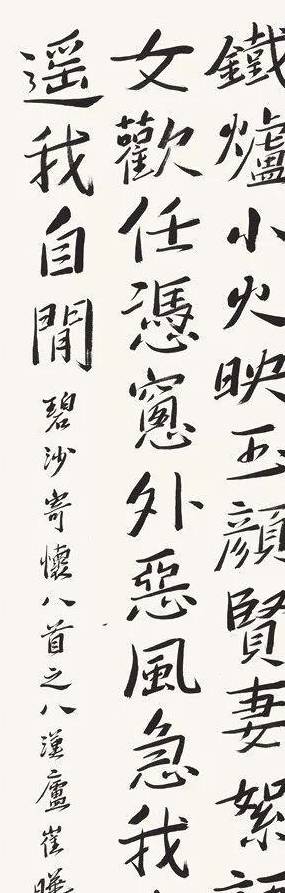 鐵爐小火映玉顔賢妻絮
女歡任憑窗外惡風急我
遥我自閒
碧沙寄懷八首之八漢廬崔